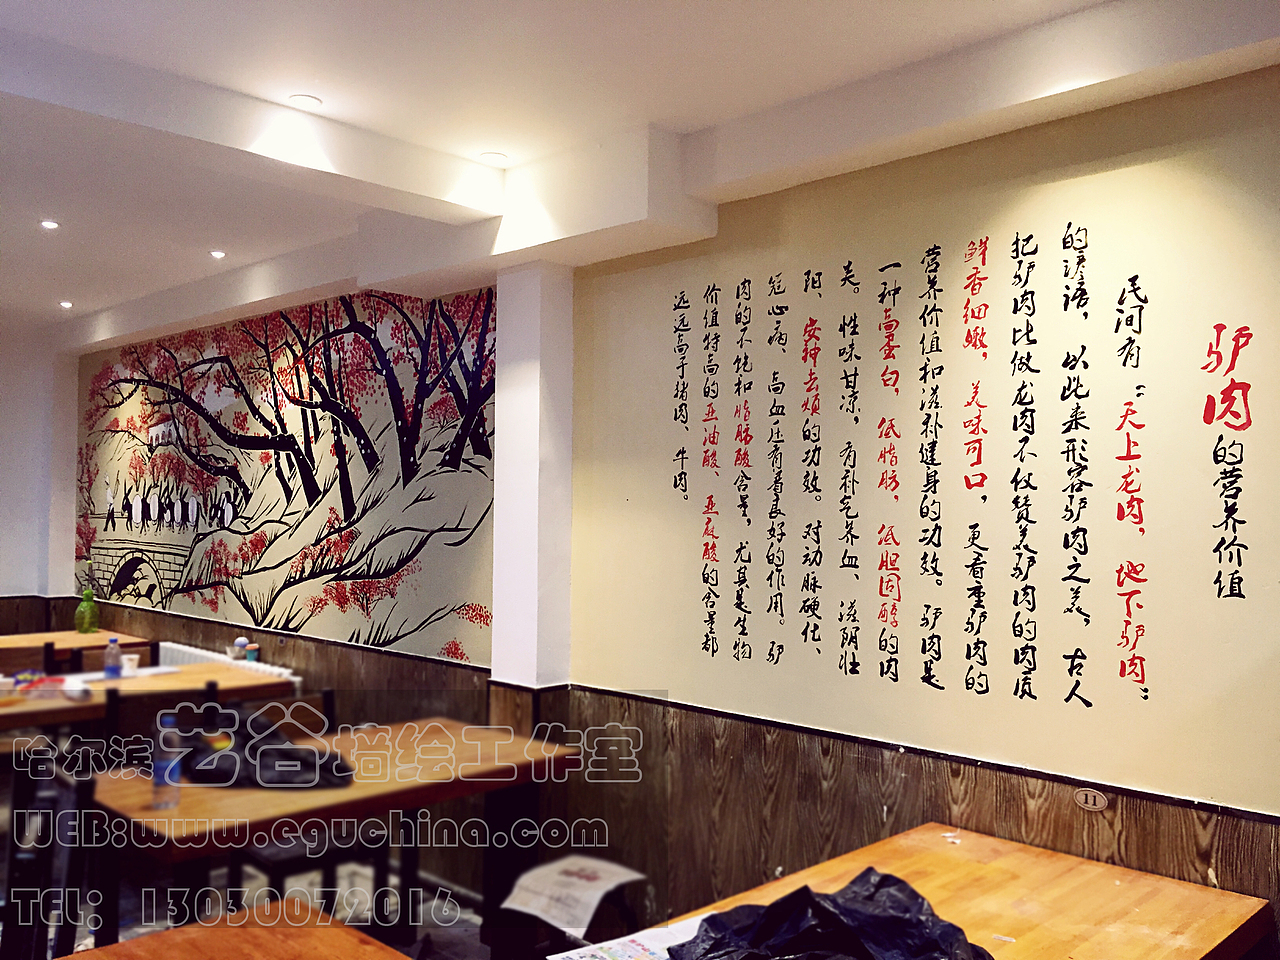 驴肉的营养价值
民间有：“天上龙肉，地下驴肉”
的谚语，以此来形容驴肉之美，古人
把驴肉比做龙肉不仅赞美驴肉的肉质
鲜香细嫩，美味可口，更看重驴肉的
营养价值和滋补健身的功效。驴肉是
一种高蛋白，低脂肪，低胆固醇的肉
类。性味甘凉，有补气养血、滋阴壮
阳、安神去烦的功效。对动脉硬化、
冠心病、高血压有着良好的作用。驴
肉的不饱和脂肪酸含量，尤其是生物
价值特高的亚油酸、亚麻酸的含量都
远远高于猪肉、牛肉。
11
哈尔滨艺谷墙绘工作室
WEB:www.eguchina.com
TEL: 13030072016